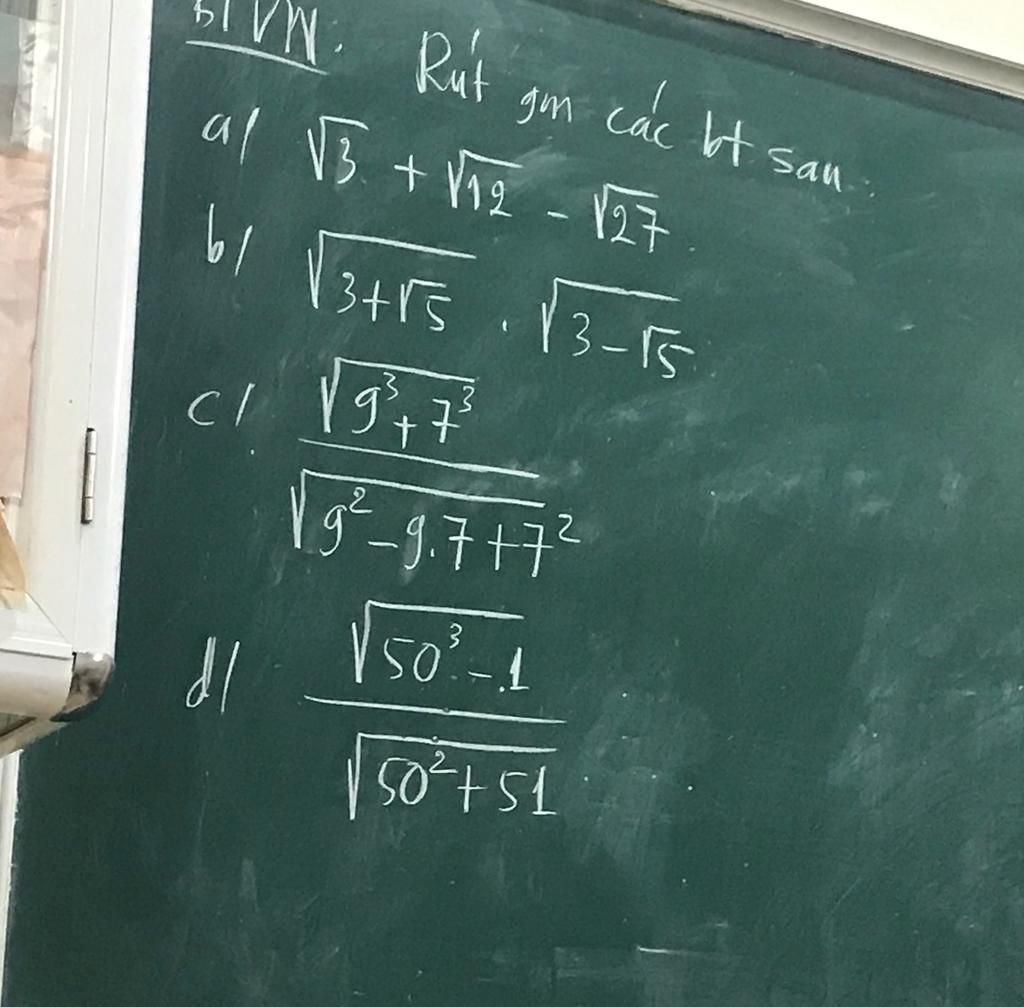 BTVN. Rút gọn các bt sau:
a/ √3 + √12 - √27
b/ √(3+√5) . √(3-√5)
c/ √(9³+7³) / √(9²-9.7+7²)
d/ √(50³-1) / √(50²+51)